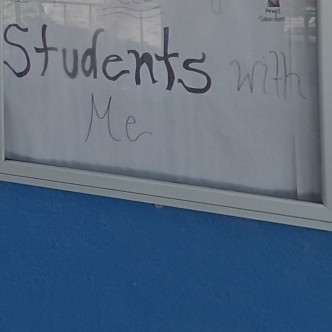 Students with
Me